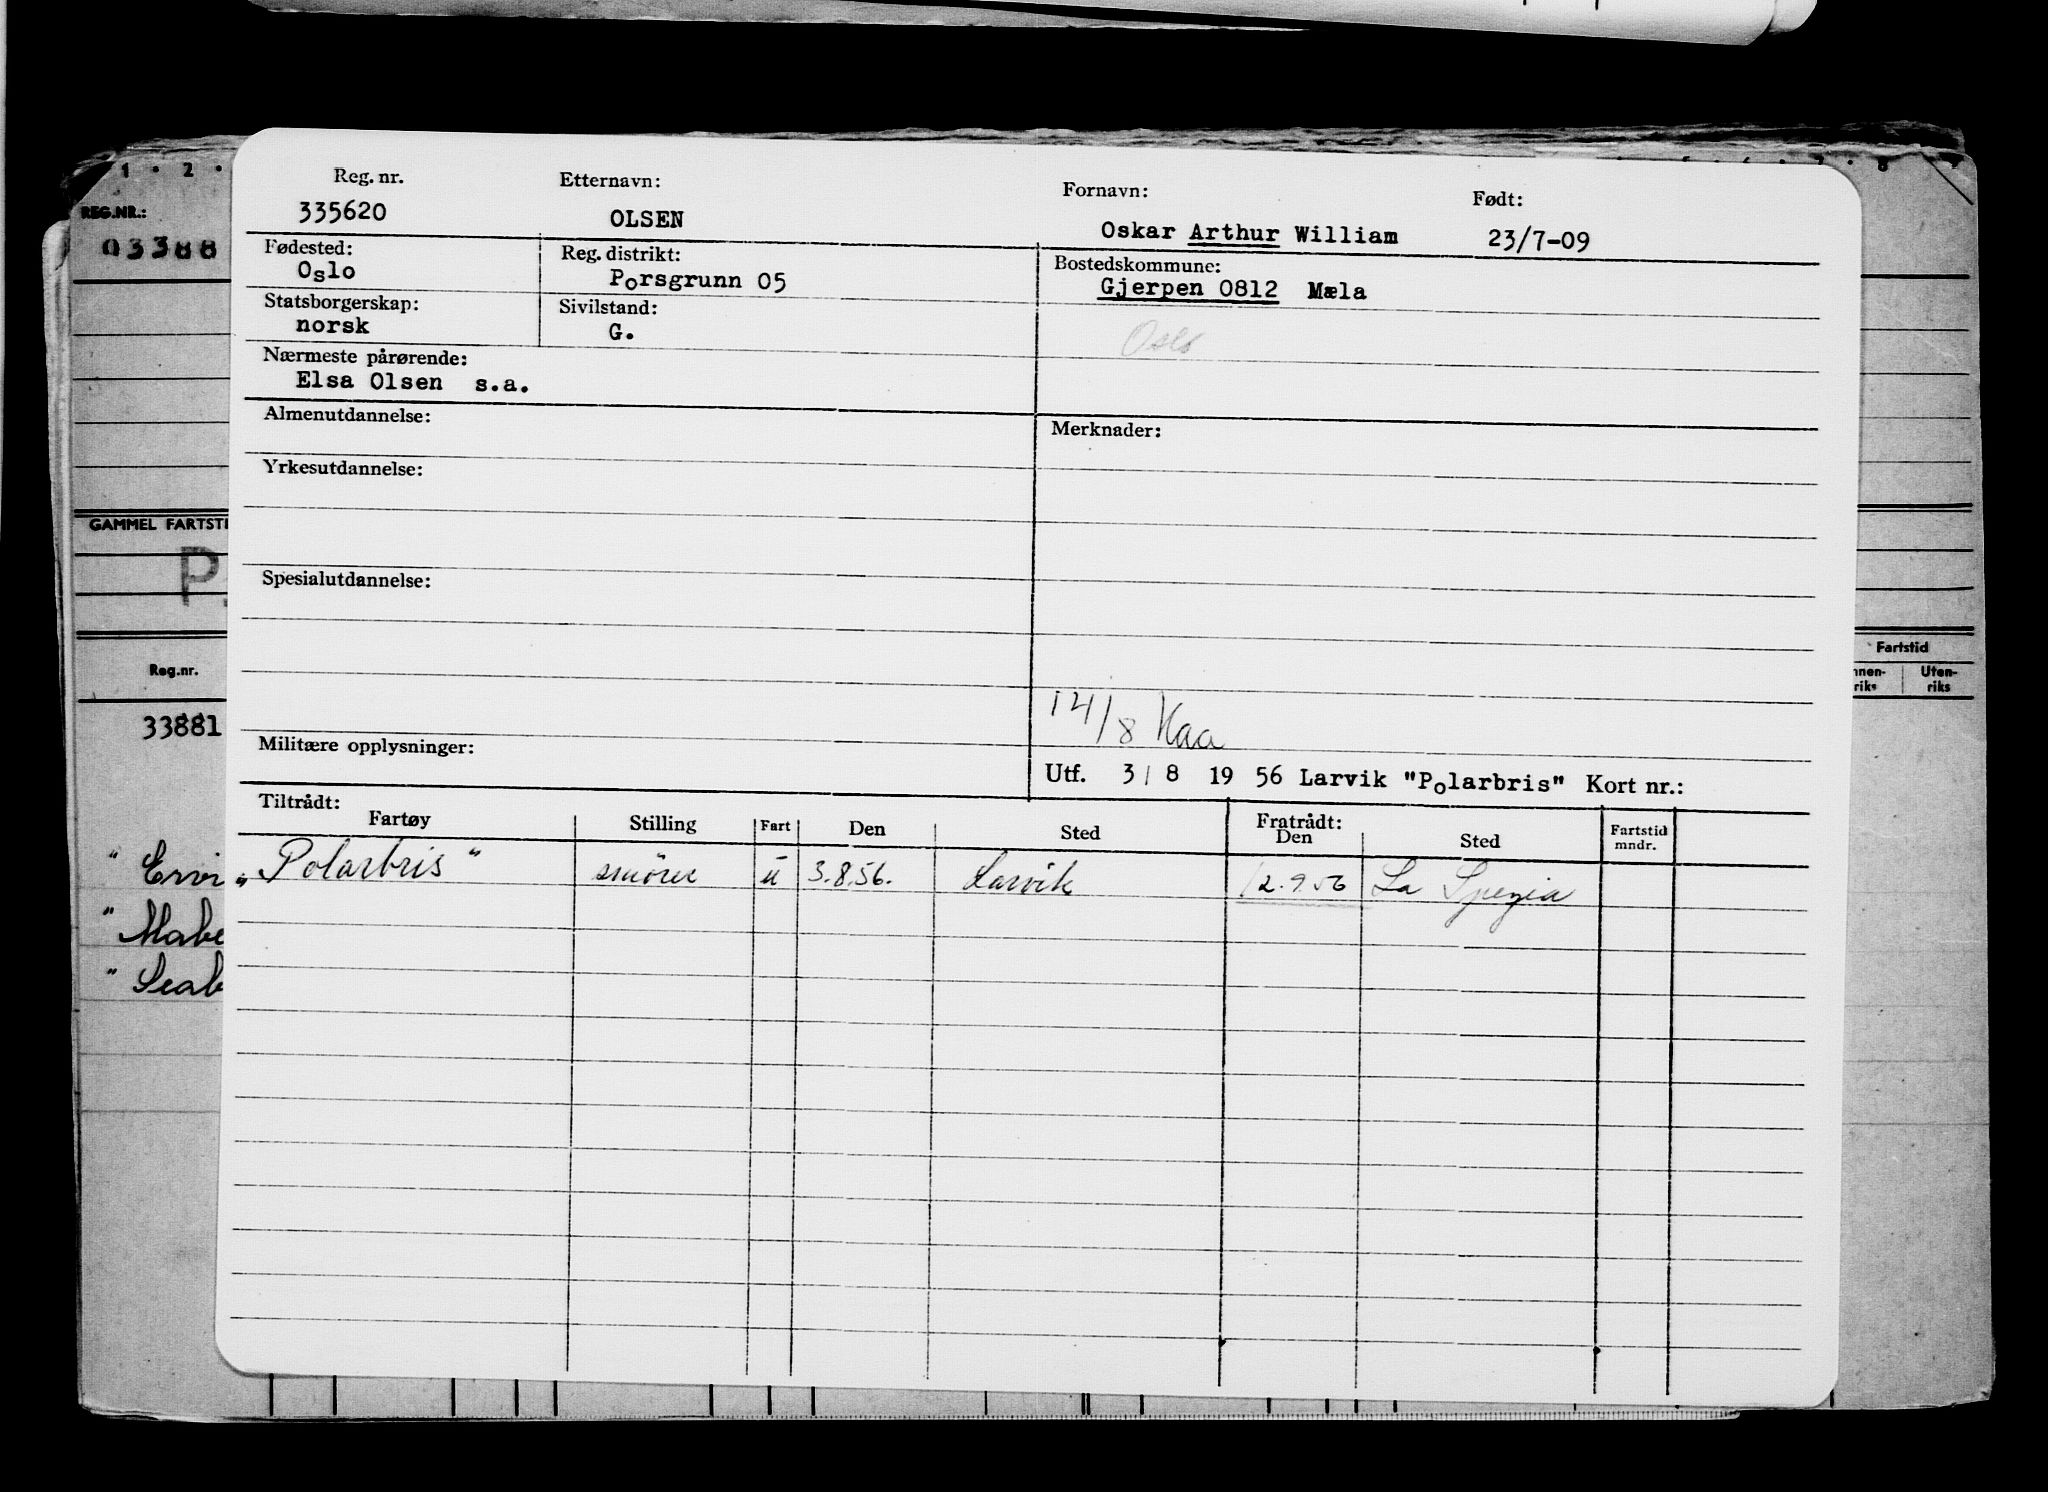 1 . 2 .
8
REG.NR.:
03388
GAMMEL FARTSTI
P
Reg.nr.
33881
" Ervi
" Mabe
" Seab
Fartstid
nnen-
riks
Uten-
riks
Reg. nr.
335620
Etternavn:
OLSEN
Fornavn:
Oskar Arthur William
Født:
23/7-09
Fødested:
Oslo
Reg. distrikt:
Porsgrunn 05
Bostedskommune:
Gjerpen 0812 Mæla
Statsborgerskap:
norsk
Sivilstand:
G.
Oslo
Nærmeste pårørende:
Elsa Olsen s.a.
Almenutdannelse:
Merknader:
Yrkesutdannelse:
Spesialutdannelse:
14/8 Kaa
Militære opplysninger:
Utf. 3/8 19 56 Larvik "Polarbris" Kort nr.:
Tiltrådt:
Fartøy Stilling Fart Den Sted
Fratrådt:
Den Sted
Fartstid
mndr.
„Polarbris" smører u 3.8.56. Larvik 12.9.56 La Spezia